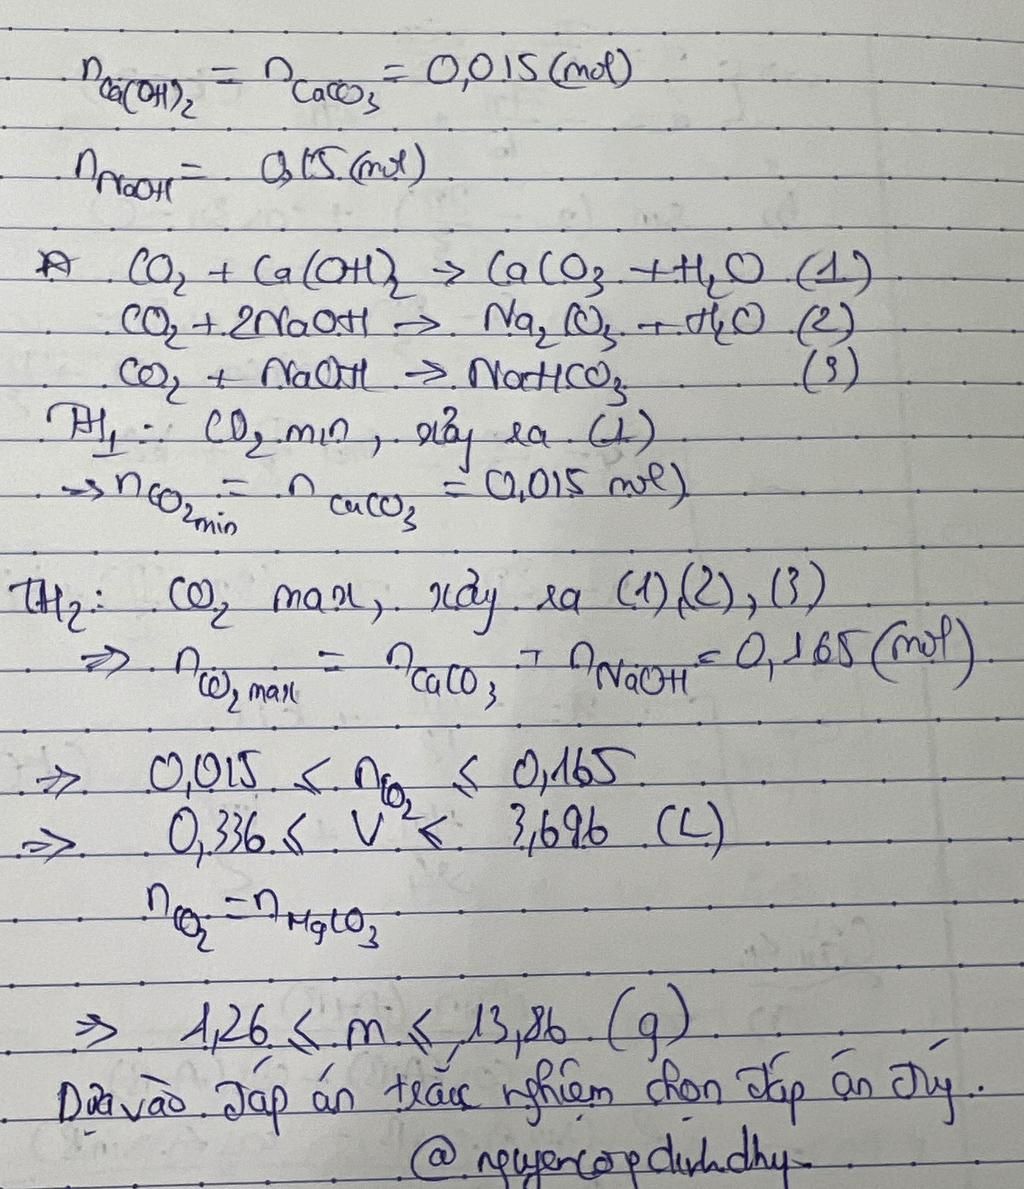 nCa(OH)2 = nCaCO3 = 0,015 (mol)
nNaOH = 0,15 (mol)
* CO2 + Ca(OH)2 → CaCO3 + H2O (1)
CO2 + 2NaOH → Na2CO3 + H2O (2)
CO2 + NaOH → NaHCO3 (3)
TH1: CO2 min, xảy ra (1)
→ nCO2 min = nCaCO3 = 0,015 mol)
TH2: CO2 max, xảy ra (1)(2), (3)
⇒ nCO2 max = nCaCO3 + nNaOH = 0,165 (mol)
⇒ 0,015 ≤ nCO2 ≤ 0,165
⇒ 0,336 ≤ V ≤ 3,696 (L)
nCO2 = nMgCO3
⇒ 1,26 ≤ m ≤ 13,86 (g)
Dựa vào đáp án trắc nghiệm chọn đáp án